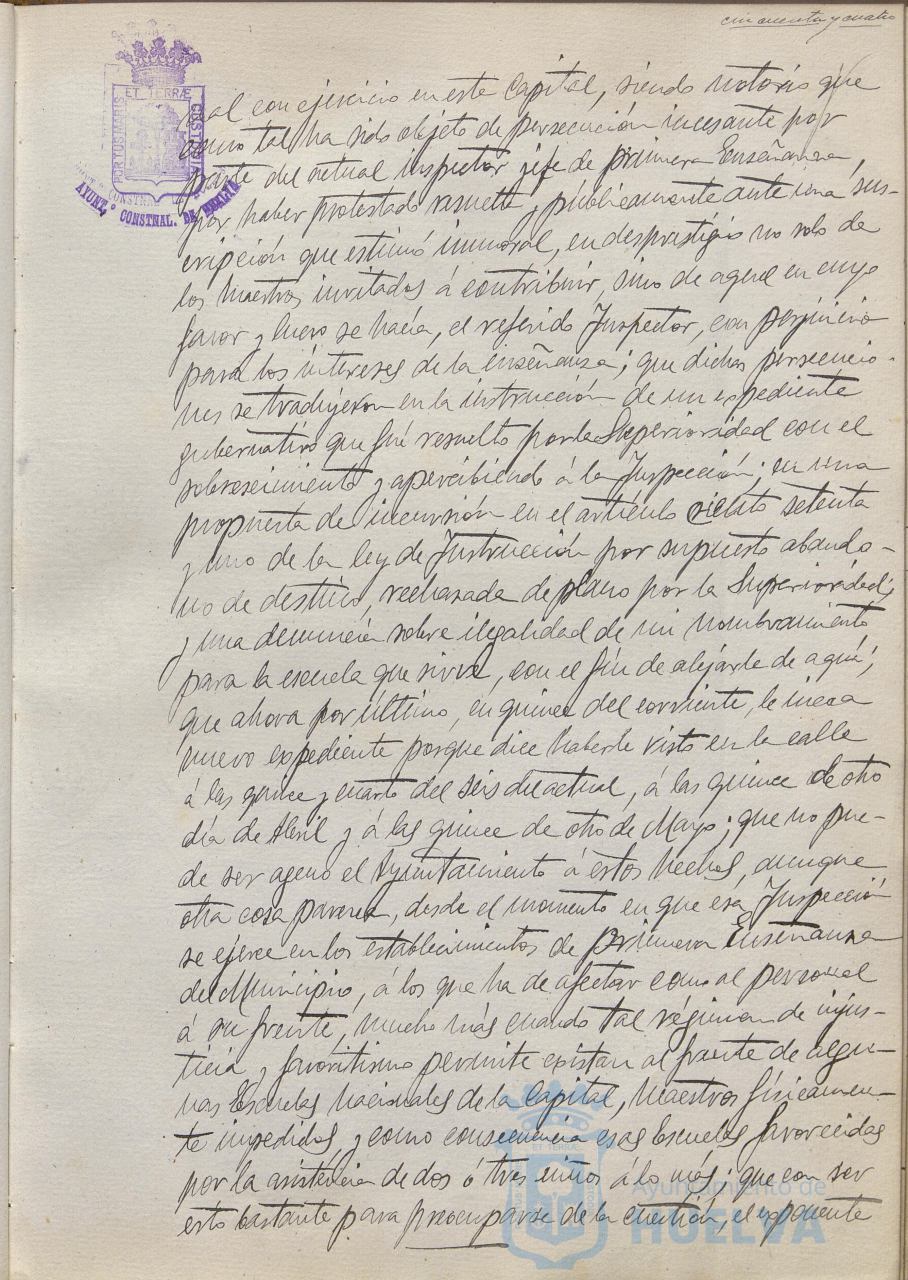 cincuenta y cuatro
PORTUS MARIS ET TERRÆ CUSTODIA
AYUNT.º CONSTNAL. DE HUELVA
nal con ejercicio en este Capital, siendo notorio que
como tal ha sido objeto de persecución incesante por
parte del actual inspector jefe de primera Enseñanza,
por haber protestado resuelta y públicamente ante una sus-
cripción que estimó inmoral, en desprestigio no solo de
los Maestros invitados á contribuir, sino de aquel en cuyo
favor y lucro se hacía, el referido Inspector, con perjuicio
para los intereses de la enseñanza; que dichas persecucio-
nes se tradujeron en la instrucción de un expediente
gubernativo que fué resuelto por la Superioridad con el
sobreseimiento y apercibiendo á la Inspección; en una
propuesta de incursión en el artículo ciento setenta
y uno de la ley de Instrucción por supuesto abando-
no de destino, rechazada de plano por la Superioridad;
y una denuncia sobre ilegalidad de un nombramiento
para la escuela que sirve, con el fín de alejarle de aquí;
que ahora por último, en quince del corriente, le incoa
nuevo expediente porque dice haberle visto en la calle
á las quince y cuarto del seis del actual, á las quince de otro
día de Abril y á las quince de otro de Mayo; que no pue-
de ser ageno el Ayuntamiento á estos hechos, aunque
otra cosa parezca, desde el momento en que esa Inspección
se ejerce en los establecimientos de primera Enseñanza
del Municipio, á los que ha de afectar como al personal
á su frente, mucho más cuando tal régimen de injus-
ticia y favoritismo permite existan al frente de algu-
nas Escuelas nacionales de la Capital, Maestros físicamen-
te impedidos y como consecuencia esas Escuelas favorecidas
por la asistencia de dos ó tres niños á lo más; que con ser
esto bastante para preocuparse de la cuestión, el exponente
Ayuntamiento de
HUELVA